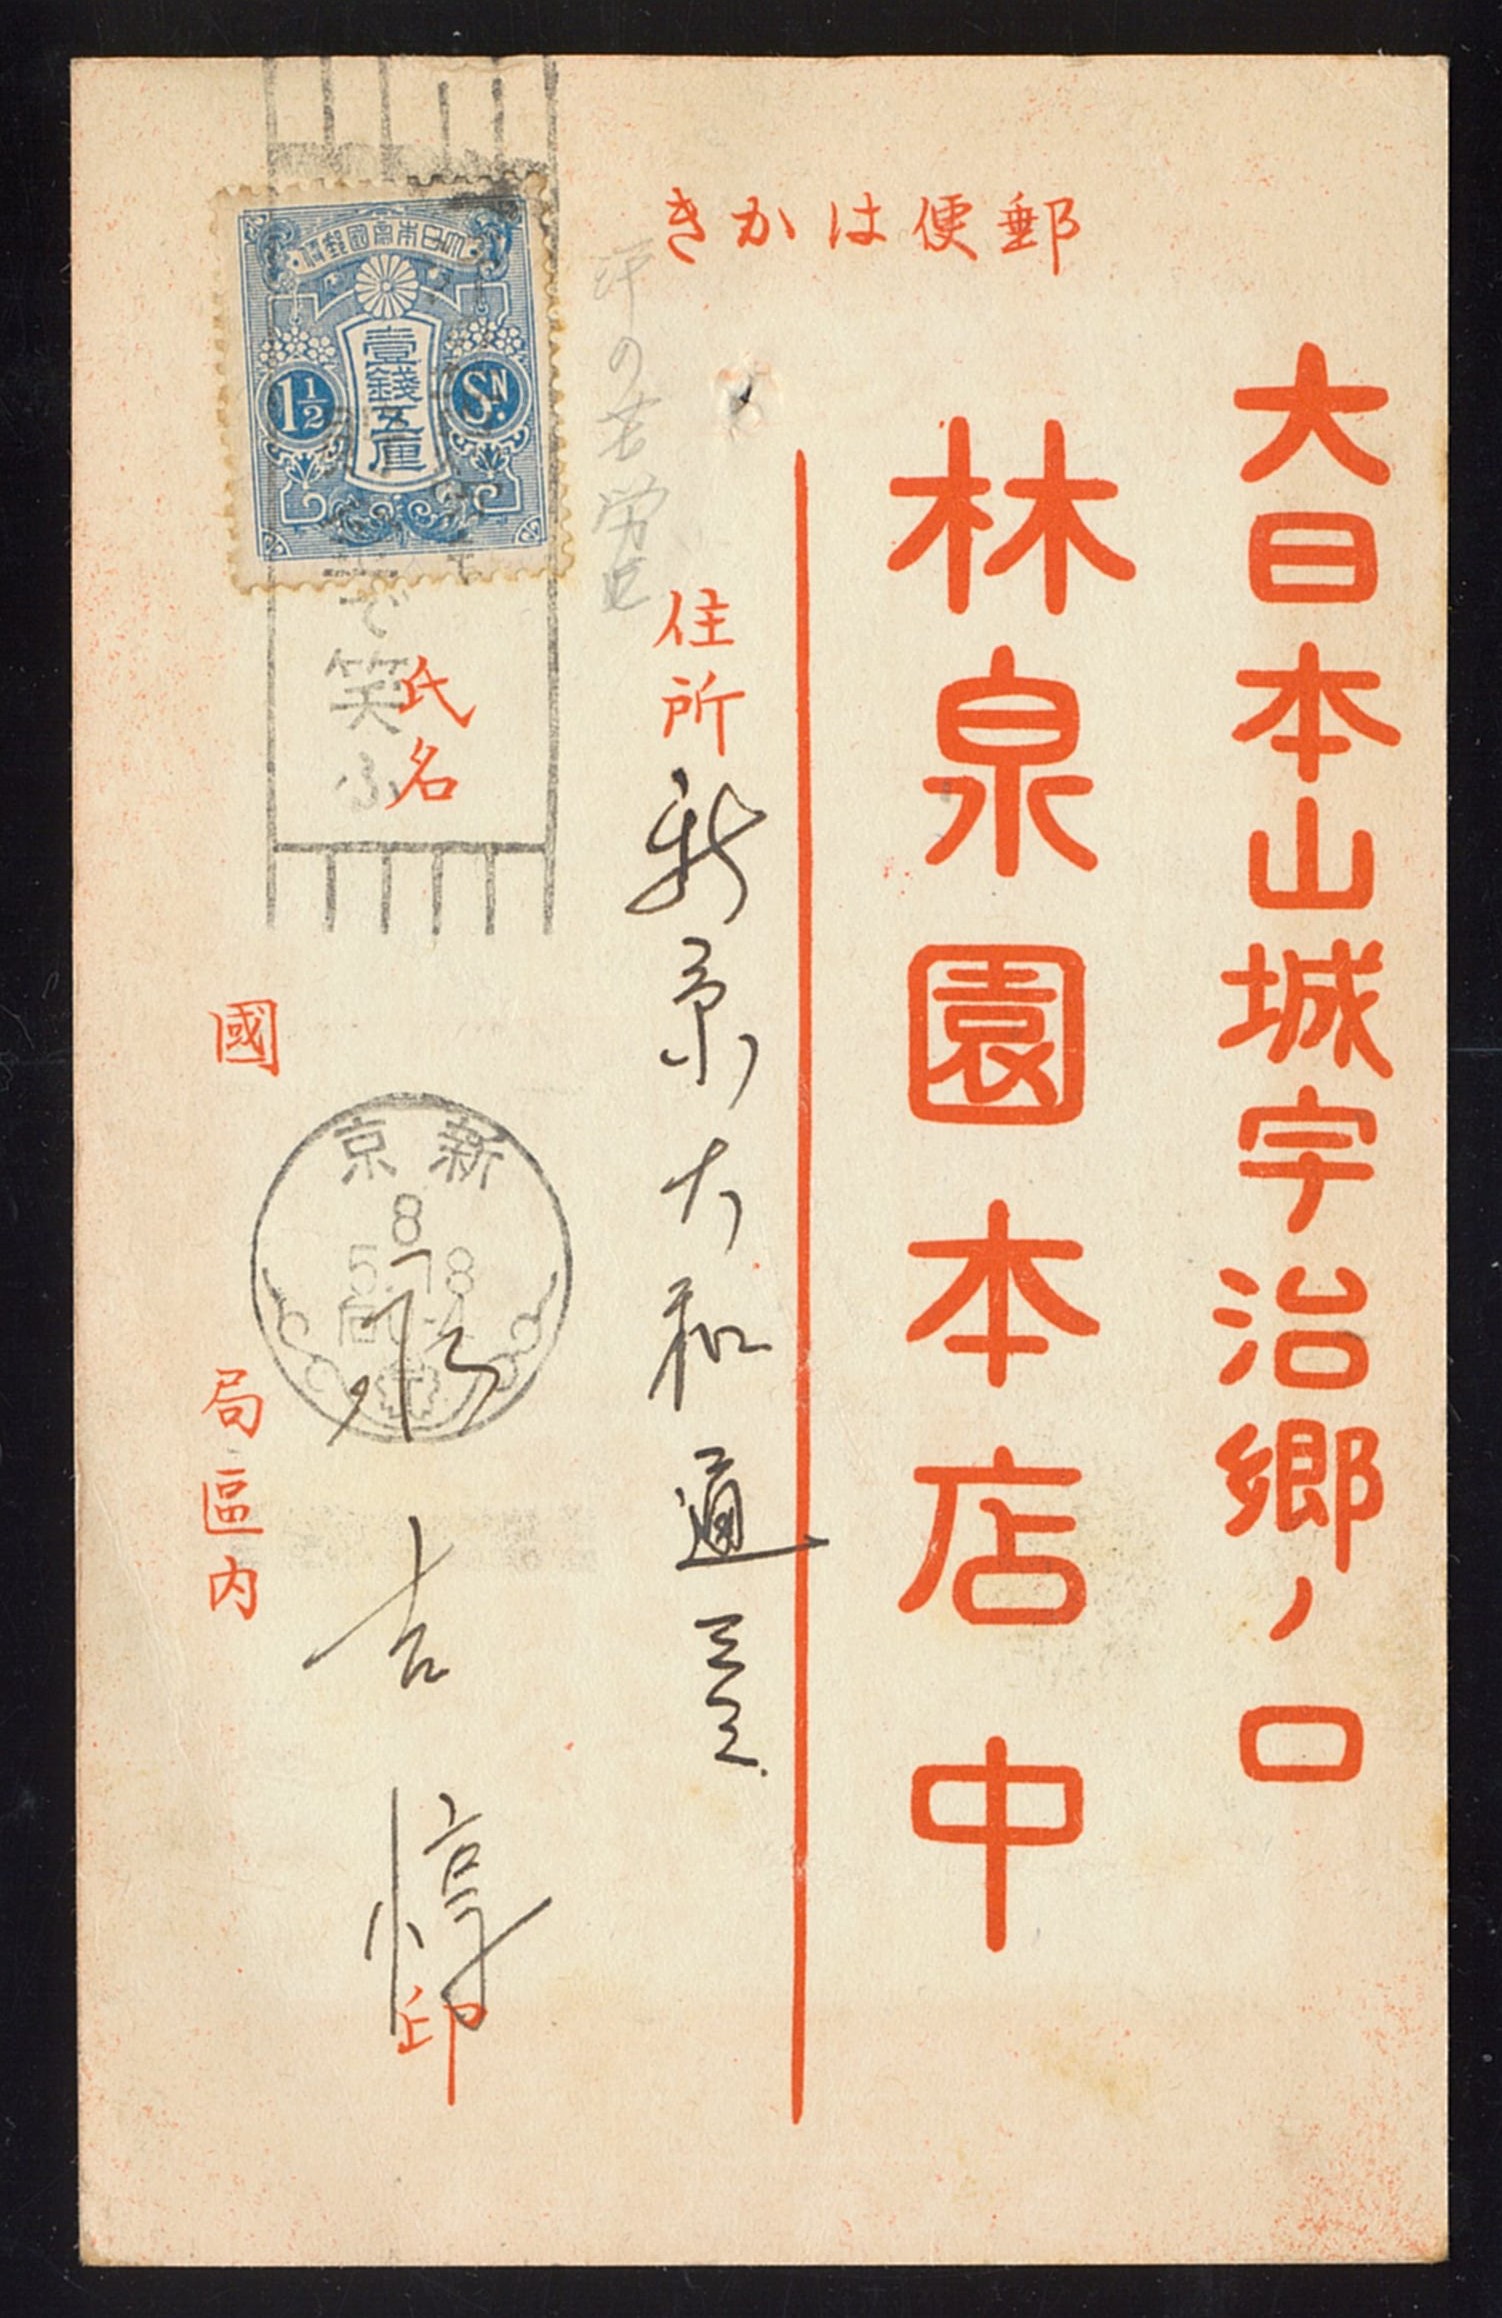 郵便はかき
大日本山城宇治郷ノ口
林泉園本店中
住所
新京大和通
氏名
吉惇
印
國
局區内
大日本帝國郵便
壹錢五厘
1½
Sn.
で笑ふ
新京
8
5.7.8
の苦労